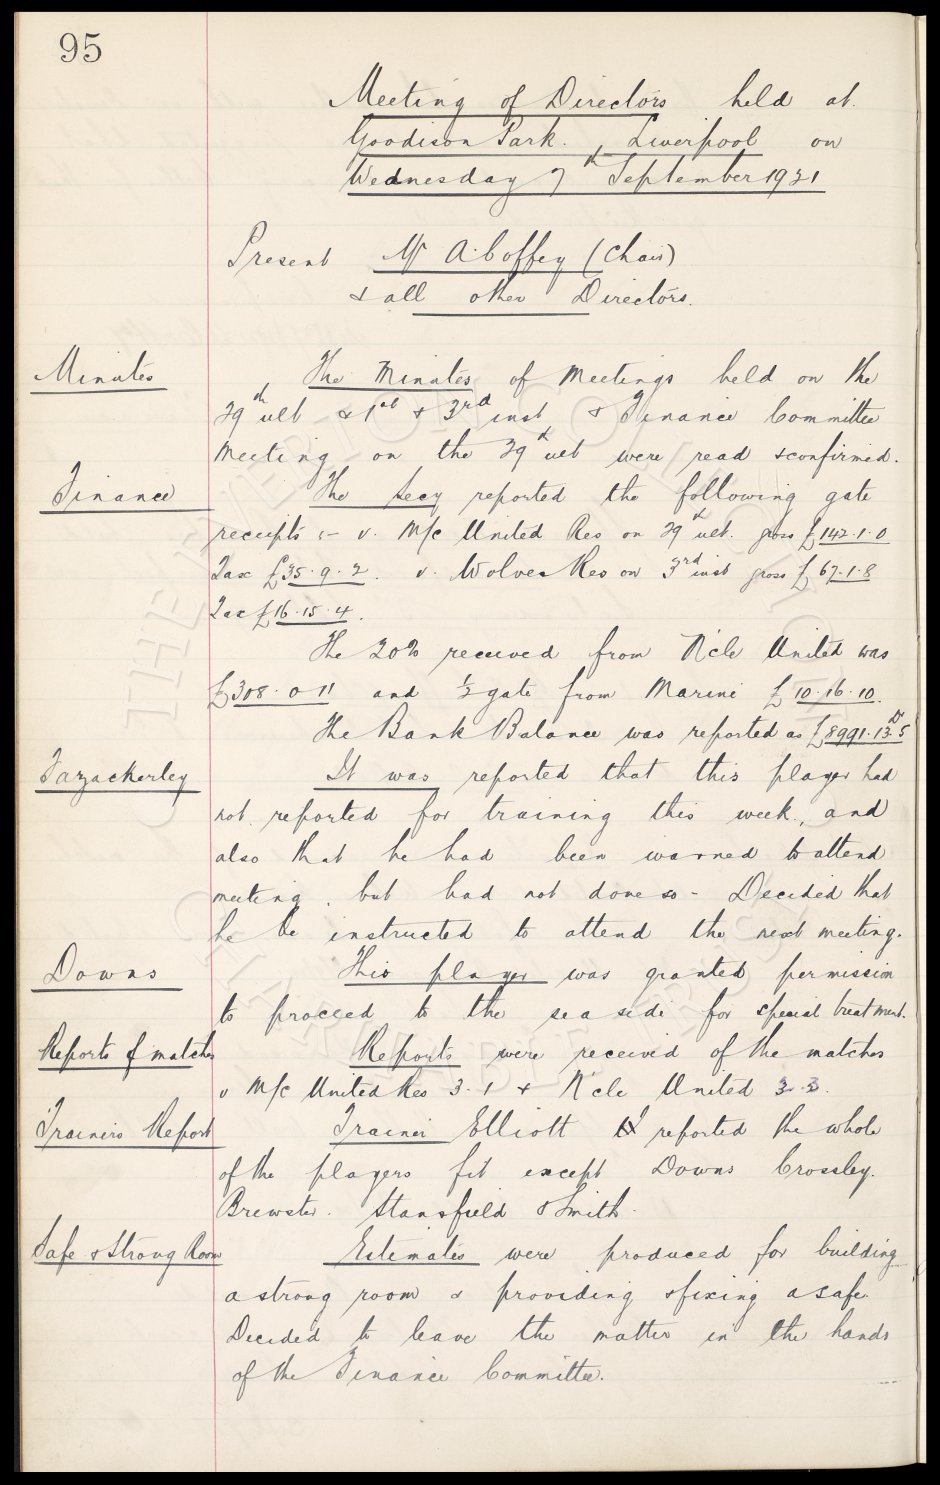 95
Meeting of Directors held at
Goodison Park, Liverpool on
Wednesday 7th September 1921
Present Mr A. Coffey (Chair)
& all other Directors.
Minutes
The Minutes of Meetings held on the
29th ult & 1st & 3rd inst & Finance Committee
meeting on the 29th ult were read & confirmed.
Finance
The Secy reported the following gate
receipts :- v. M/c United Res on 29th ult. gross £142.1.0
Tax £35.9.2. v. Wolves Res on 3rd inst gross £67.1.8
Tax £16.15.4.
The 20% received from N'cle United was
£308.0.11 and ½ gate from Marine £10.16.10.
The Bank Balance was reported as £8991.13.5 Dr
Fazackerley
It was reported that this player had
not reported for training this week, and
also that he had been warned to attend
meeting, but had not done so - Decided that
he be instructed to attend the next meeting.
Downs
This player was granted permission
to proceed to the sea side for special treatment.
Reports of matches
Reports were received of the matches
v M/c United Res 3.1 & N'cle United 3.3.
Trainers Report
Trainer Elliott reported the whole
of the players fit except Downs Crossley.
Brewster. Stansfield & Smith.
Safe & Strong Room
Estimates were produced for building
a strong room & providing & fixing a safe.
Decided to leave the matter in the hands
of the Finance Committee.
THE EVERTON COLLECTION
CHARITABLE TRUST